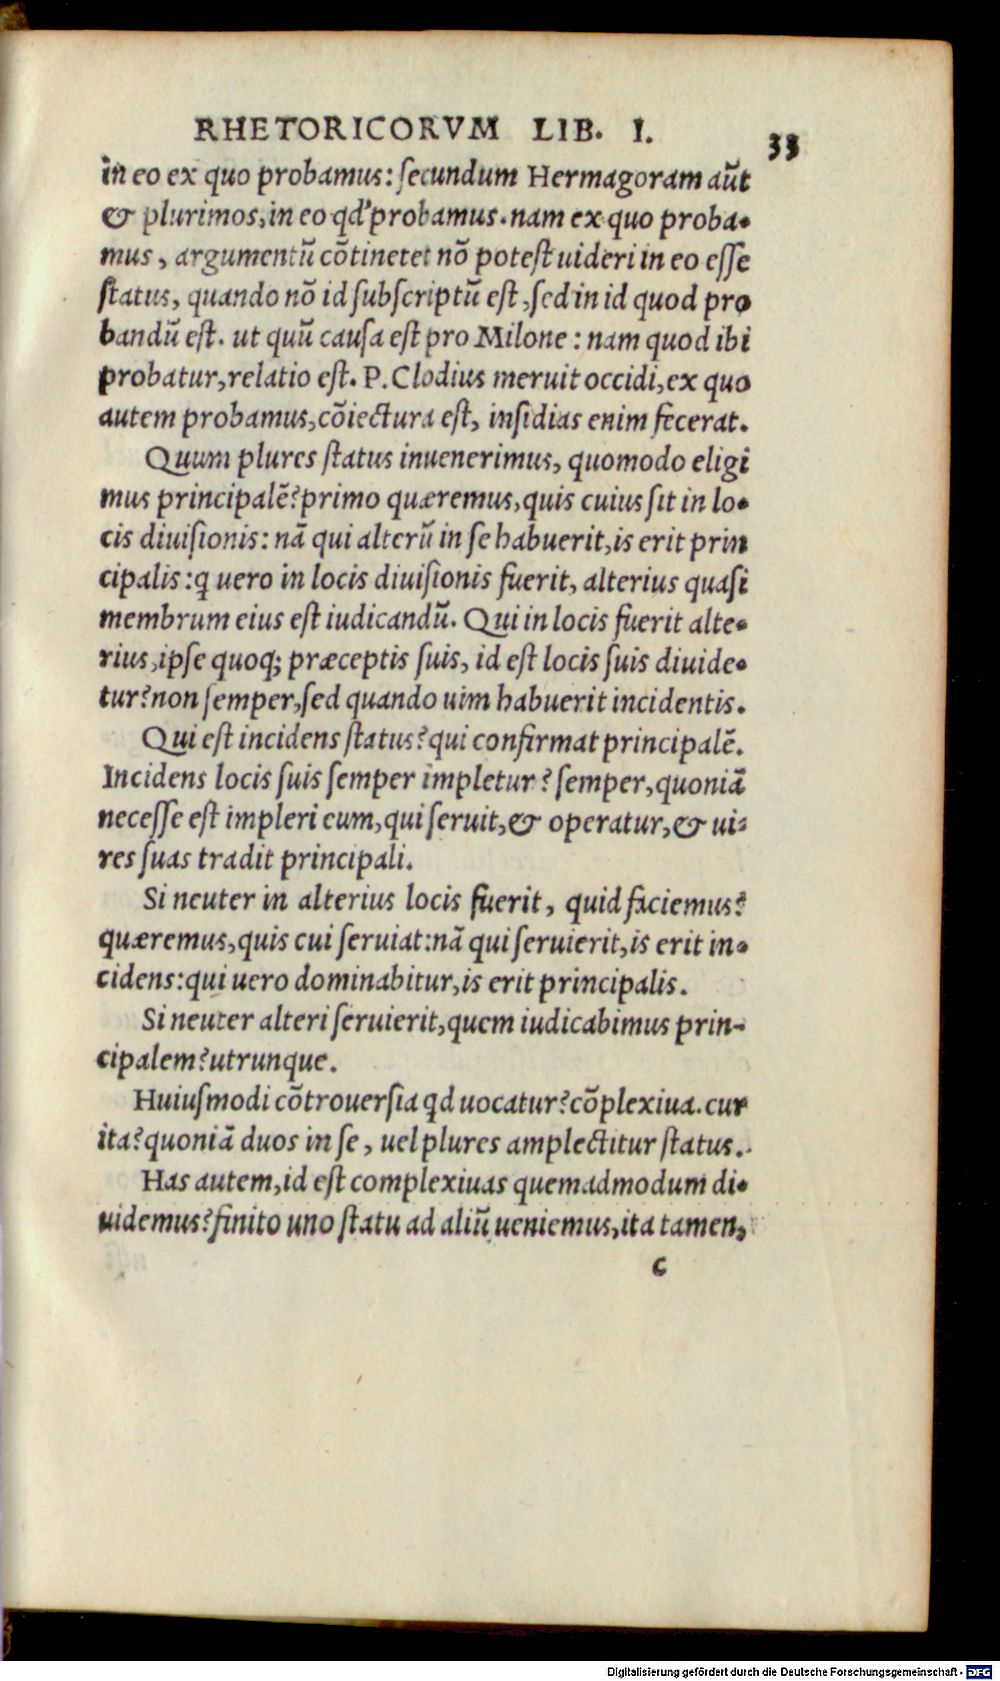 RHETORICORVM LIB. I.
33
in eo ex quo probamus: ſecundum Hermagoram aūt
& plurimos, in eo qd' probamus. nam ex quo proba-
mus, argumentū cōtinetet nō poteſt uideri in eo eſſe
ſtatus, quando nō id ſubſcriptū eſt, ſed in id quod pro
bandū eſt. ut quū cauſa eſt pro Milone: nam quod ibi
probatur, relatio eſt. P. Clodius meruit occidi, ex quo
autem probamus, cōiectura eſt, inſidias enim fecerat.
Quum plures ſtatus inuenerimus, quomodo eligi
mus principalē? primo quæremus, quis cuius ſit in lo-
cis diuiſionis: nā qui alterū in ſe habuerit, is erit prin
cipalis: q uero in locis diuiſionis fuerit, alterius quaſi
membrum eius eſt iudicandū. Qui in locis fuerit alte-
rius, ipſe quoq; præceptis ſuis, id eſt locis ſuis diuide-
tur? non ſemper, ſed quando uim habuerit incidentis.
Qui eſt incidens ſtatus? qui confirmat principalē.
Incidens locis ſuis ſemper impletur? ſemper, quoniā
neceſſe eſt impleri eum, qui ſeruit, & operatur, & ui-
res ſuas tradit principali.
Si neuter in alterius locis fuerit, quid faciemus?
quæremus, quis cui ſeruiat: nā qui ſeruierit, is erit in-
cidens: qui uero dominabitur, is erit principalis.
Si neuter alteri ſeruierit, quem iudicabimus prin-
cipalem? utrunque.
Huiuſmodi cōtrouerſia qd uocatur? cōplexiua. cur
ita? quoniā duos in ſe, uel plures amplectitur ſtatus.
Has autem, id eſt complexiuas quemadmodum di-
uidemus? finito uno ſtatu ad aliū ueniemus, ita tamen,
c
Digitalisierung gefördert durch die Deutsche Forschungsgemeinschaft - DFG